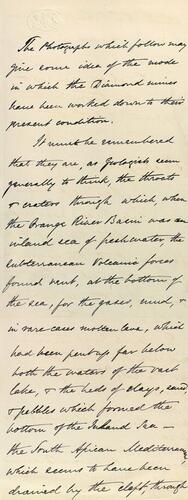 The Photographs which follow may
give some idea of the mode
in which the Diamond mines
have been worked down to their
present condition.
It must be remembered
that they are, as Geologists seem
generally to think, the throats
& craters through which, when
the Orange River Basin was an
inland sea of fresh water, the
subterranean Volcanic forces
found vent, at the bottom of
the sea, for the gases, mud, &
in rare cases molten lava, which
had been pent up far below
both the waters of the vast
lake, & the beds of clays, sand,
& pebbles which formed the
bottom of the Inland Sea —
the South African Mediterranean
which seems to have been
drained by the cleft through